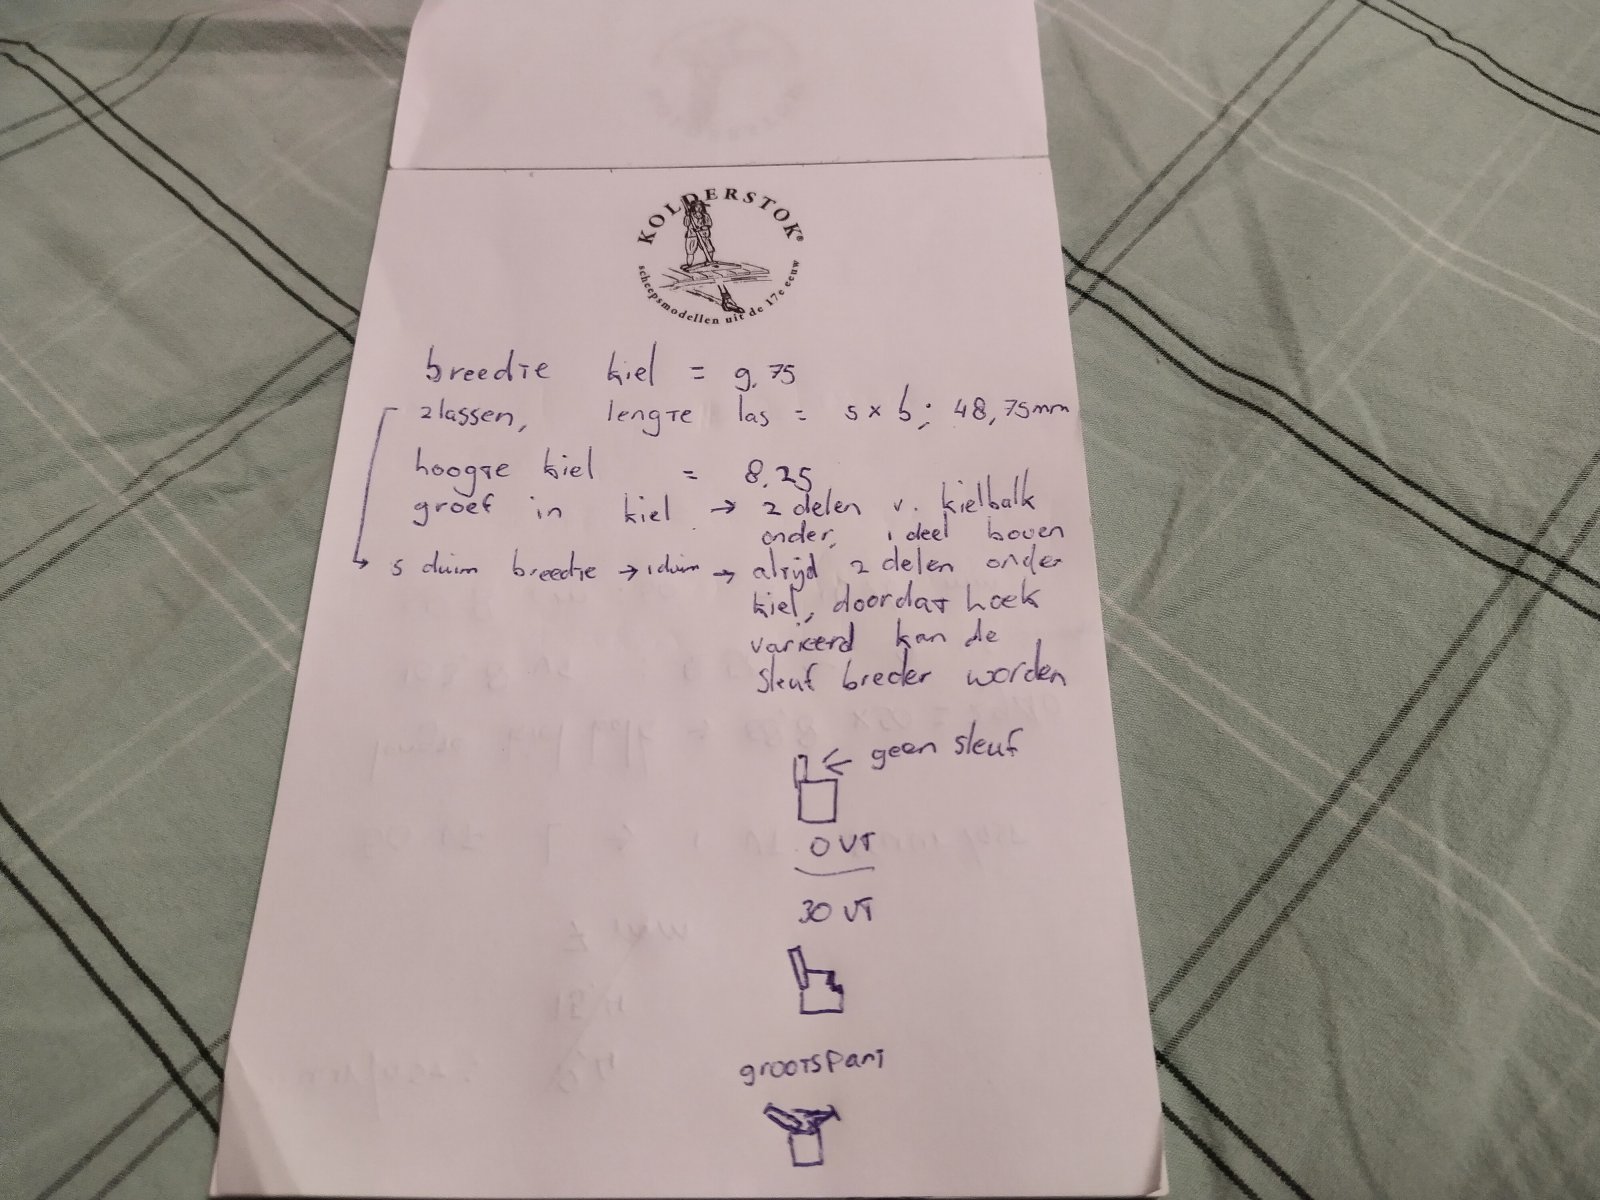 KOLDERSTOK®
scheepsmodellen uit de 17e eeuw
breedte kiel = 9,75
2 lassen, lengte las = 5 x b; 48,75mm
hoogte kiel = 8,25
groef in kiel → 2 delen v. kielbalk
onder, 1 deel boven
5 duim breedte → 1 duim → altijd 2 delen onder
kiel, doordat hoek
varieerd kan de
sleuf breder worden
geen sleuf
0 VT
30 VT
grootspant